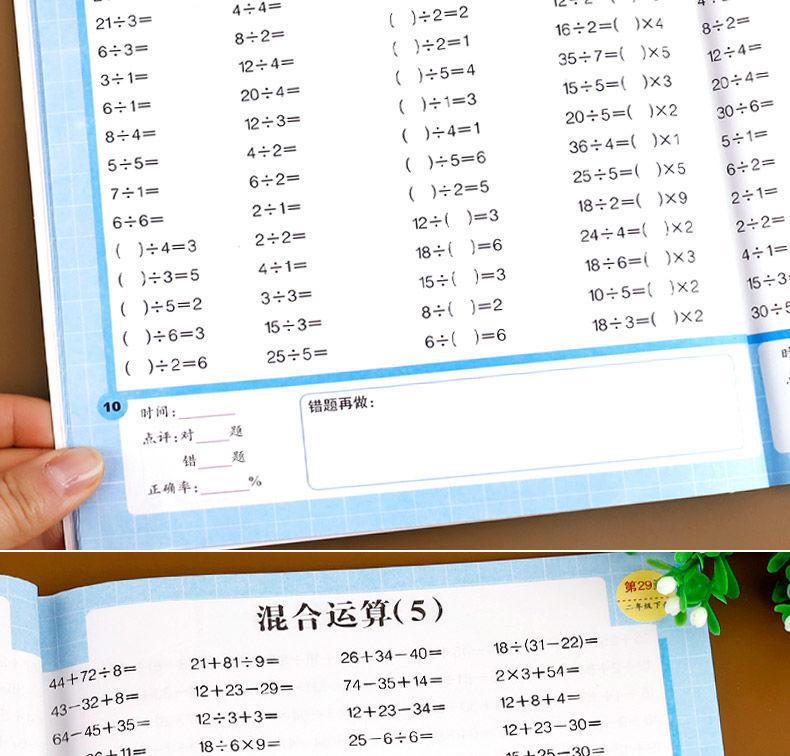 21÷3=
6÷3=
3÷1=
6÷1=
8÷4=
5÷5=
7÷1=
6÷6=
(  )÷4=3
(  )÷3=5
(  )÷5=2
(  )÷6=3
(  )÷2=6
4÷4=
8÷2=
12÷4=
20÷4=
12÷3=
4÷2=
6÷2=
2÷1=
2÷2=
4÷1=
3÷3=
15÷3=
25÷5=
(  )÷2=2
(  )÷2=1
(  )÷5=4
(  )÷1=3
(  )÷4=1
(  )÷5=6
(  )÷2=5
12÷(  )=3
18÷(  )=6
15÷(  )=3
8÷(  )=2
6÷(  )=6
16÷2=(  )×4
35÷7=(  )×5
15÷5=(  )×3
20÷5=(  )×2
36÷4=(  )×1
25÷5=(  )×5
18÷2=(  )×9
24÷4=(  )×2
18÷6=(  )×3
10÷5=(  )×2
18÷3=(  )×2
8÷2=
12÷4=
20÷4=
30÷6=
5÷1=
6÷2=
2÷1=
2÷2=
4÷1=
15÷3
30÷5
10
时间:______
点评:对____题
错____题
正确率:______%
错题再做:
混合运算(5)
第29
二年级下
44+72÷8=
43-32+8=
64-45+35=
21+81÷9=
12+23-29=
12÷3+3=
18÷6×9=
26+34-40=
74-35+14=
12+23-34=
25-6÷6=
18÷(31-22)=
2×3+54=
12+8+4=
12+23-30=